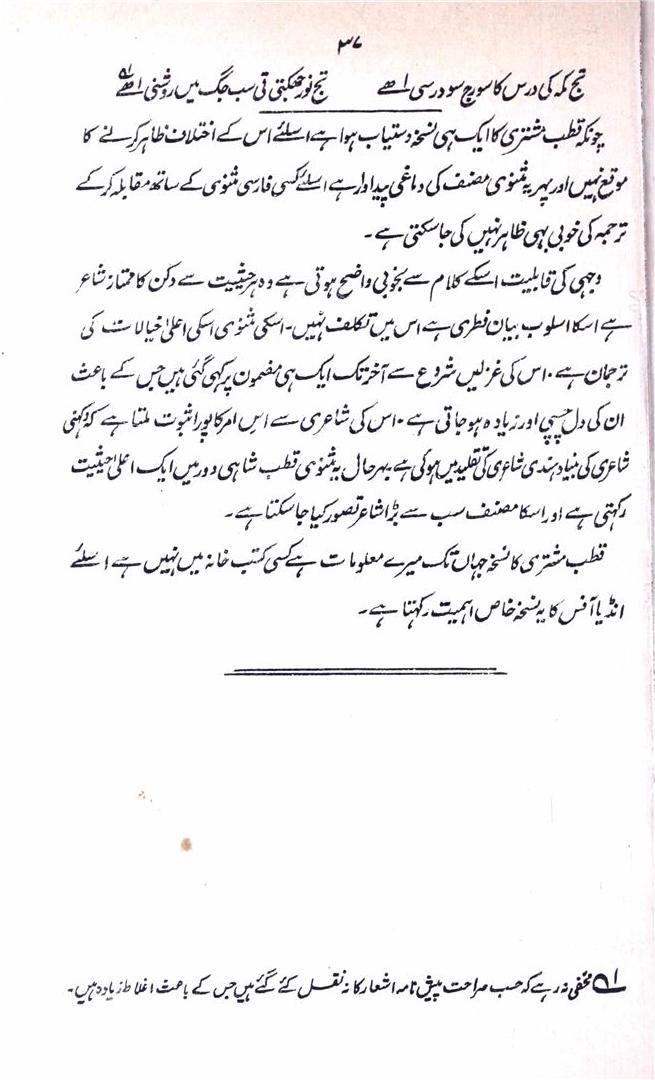 ۳۷
تج مکہ کی درس کا سورج سو درسی اھے تج نور جھکتی تی سب جگ میں روشنی اھے
چونکہ قطب مشتری کا ایک ہی نسخہ دستیاب ہوا ہے اسلئے اس کے اختلاف ظاہر کرنے کا
موقع نہیں اور پھر یہ مثنوی مصنف کی دماغی پیداوار ہے اسلئے کسی فارسی مثنوی کے ساتھ مقابلہ کرکے
ترجمہ کی خوبی بہی ظاہر نہیں کی جاسکتی ہے۔
وجہی کی قابلیت اسکے کلام سے بخوبی واضح ہوتی ہے وہ ہر حیثیت سے دکن کا ممتاز شاعر
ہے اسکا اسلوب بیان فطری ہے اس میں تکلف نہیں۔ اسکی مثنوی اسکی اعلیٰ خیالات کی
ترجمان ہے۔ اس کی غزلیں شروع سے آخر تک ایک ہی مضمون پر کہی گئی ہیں جس کے باعث
ان کی دل چسپی اور زیادہ ہوجاتی ہے۔ اس کی شاعری سے اس امر کا پورا ثبوت ملتا ہے کہ دکہنی
شاعری کی بنیاد ہندی شاعری کی تقلید میں ہوئی ہے بہر حال یہ مثنوی قطب شاہی دور میں ایک اعلیٰ حیثیت
رکہتی ہے اور اسکا مصنف سب سے بڑا شاعر تصور کیا جاسکتا ہے۔
قطب مشتری کا نسخہ جہاں تک میرے معلومات ہے کسی کتب خانہ میں نہیں ہے اسلئے
انڈیا آفس کا یہ نسخہ خاص اہمیت رکہتا ہے۔
۱؎ مخفی نہ رہے کہ حسب صراحت پیش نامہ اشعار کا نہ نقل کئے گئے ہیں جس کے باعث اغلاط زیادہ ہیں۔